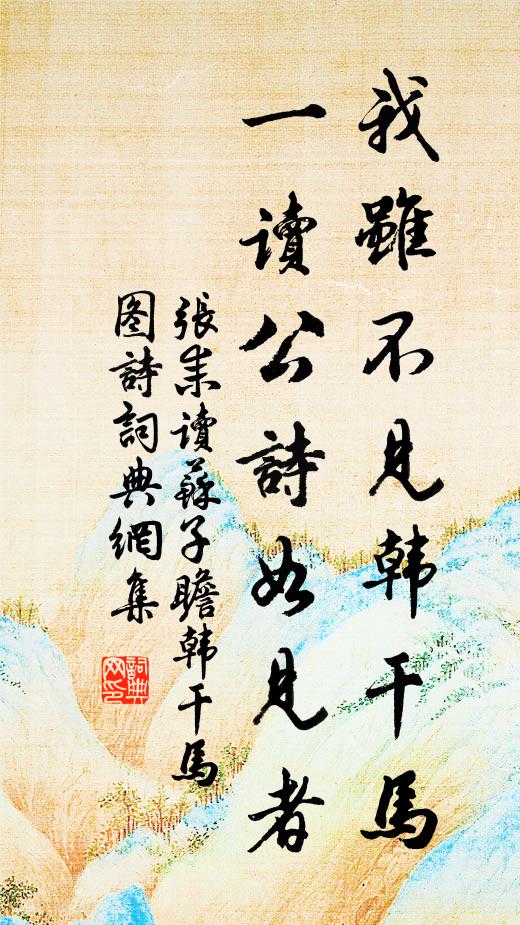 我雖不見韓干馬
一讀公詩如見者
張耒讀蘇子瞻韓干馬
图詩詞典網集
詞典网印